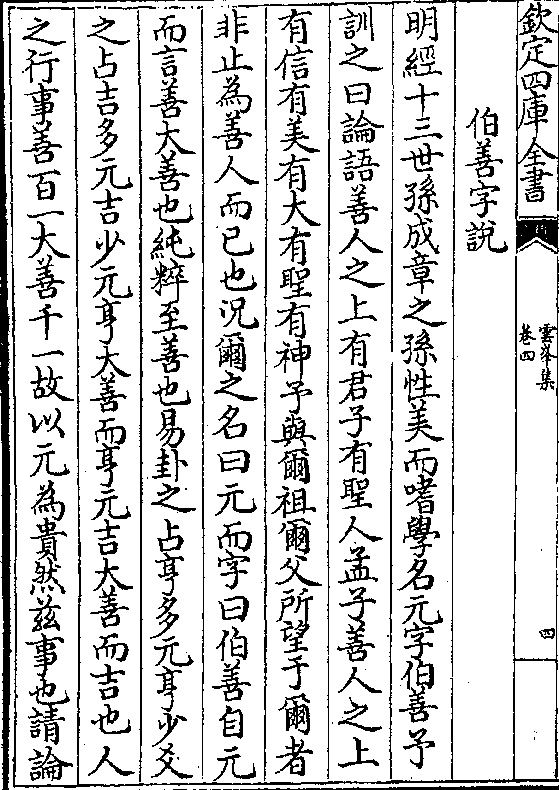 欽定四庫全書
雲峯集
卷四
四
伯善字說
明經十三世孫成章之孫性美而嗜學名元字伯善予
訓之曰論語善人之上有君子有聖人孟子善人之上
有信有美有大有聖有神予與爾祖爾父所望于爾者
非止為善人而已也况爾之名曰元而字曰伯善自元
而言善大善也純粹至善也易卦之占亨多元亨少爻
之占吉多元吉少元亨大善而亨元吉大善而吉也人
之行事善百一大善千一故以元為貴然兹事也請論